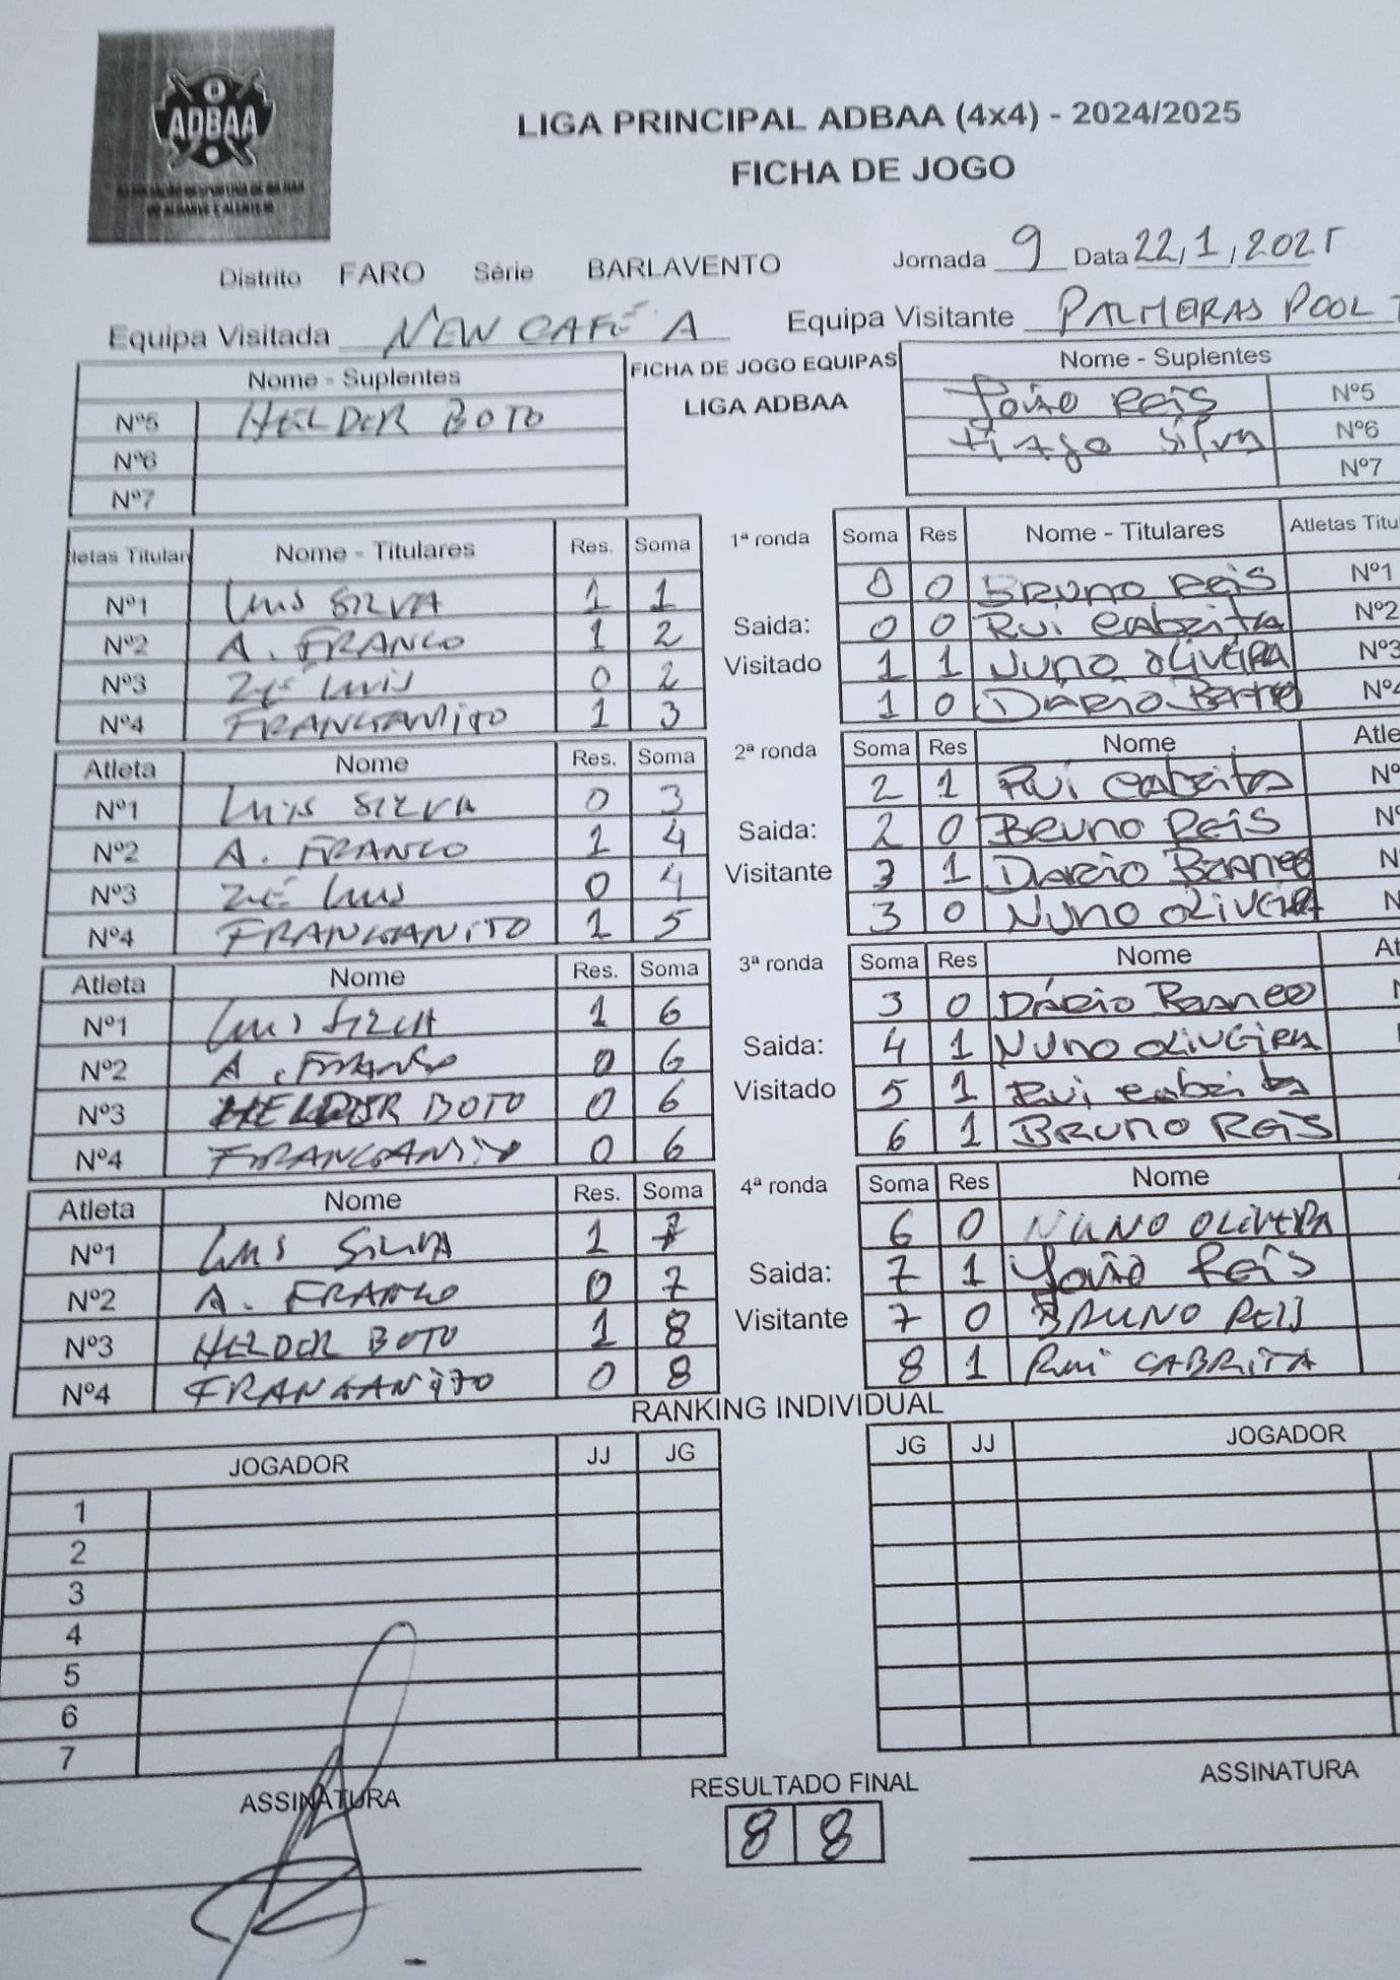 ADBAA
LIGA PRINCIPAL ADBAA (4x4) - 2024/2025
FICHA DE JOGO
Distrito FARO Série BARLAVENTO Jornada 9 Data 22/1/2025
Equipa Visitada NEW CAFÉ A Equipa Visitante PALMERAS POOL
Nome - Suplentes FICHA DE JOGO EQUIPAS Nome - Suplentes
LIGA ADBAA
Nº5 HELDER BOTO João Reis Nº5
Nº6 tiago Silva Nº6
Nº7 Nº7
letas Titular Nome - Titulares Res. Soma 1ª ronda Soma Res Nome - Titulares Atletas Titu
Nº1 Luis SILVA 1 1 0 0 Bruno Reis Nº1
Nº2 A. FRANCO 1 2 Saida: 0 0 Rui Cabrita Nº2
Nº3 Zé Luis 0 2 Visitado 1 1 Nuno OLIVEIRA Nº3
Nº4 FRANGANITO 1 3 1 0 Dário Nº4
Atleta Nome Res. Soma 2ª ronda Soma Res Nome Atle
Nº1 Luis SILVA 0 3 2 1 Rui Cabrita Nº
Nº2 A. FRANCO 1 4 Saida: 2 0 Bruno Reis N
Nº3 Zé Luis 0 4 Visitante 3 1 Dario N
Nº4 FRANGANITO 1 5 3 0 Nuno OLIVEIRA N
Atleta Nome Res. Soma 3ª ronda Soma Res Nome At
Nº1 Luis SILVA 1 6 3 0 Dário N
Nº2 A. FRANCO 0 6 Saida: 4 1 Nuno OLIVEIRA
Nº3 HELDER BOTO 0 6 Visitado 5 1 Rui Cabrita
Nº4 FRANGANITO 0 6 6 1 BRUNO REIS
Atleta Nome Res. Soma 4ª ronda Soma Res Nome
Nº1 Luis SILVA 1 7 6 0 NUNO OLIVEIRA
Nº2 A. FRANCO 0 7 Saida: 7 1 João Reis
Nº3 HELDER BOTO 1 8 Visitante 7 0 BRUNO REIS
Nº4 FRANGANITO 0 8 8 1 Rui CABRITA
RANKING INDIVIDUAL
JOGADOR JJ JG JG JJ JOGADOR
1
2
3
4
5
6
7
ASSINATURA RESULTADO FINAL ASSINATURA
8 8